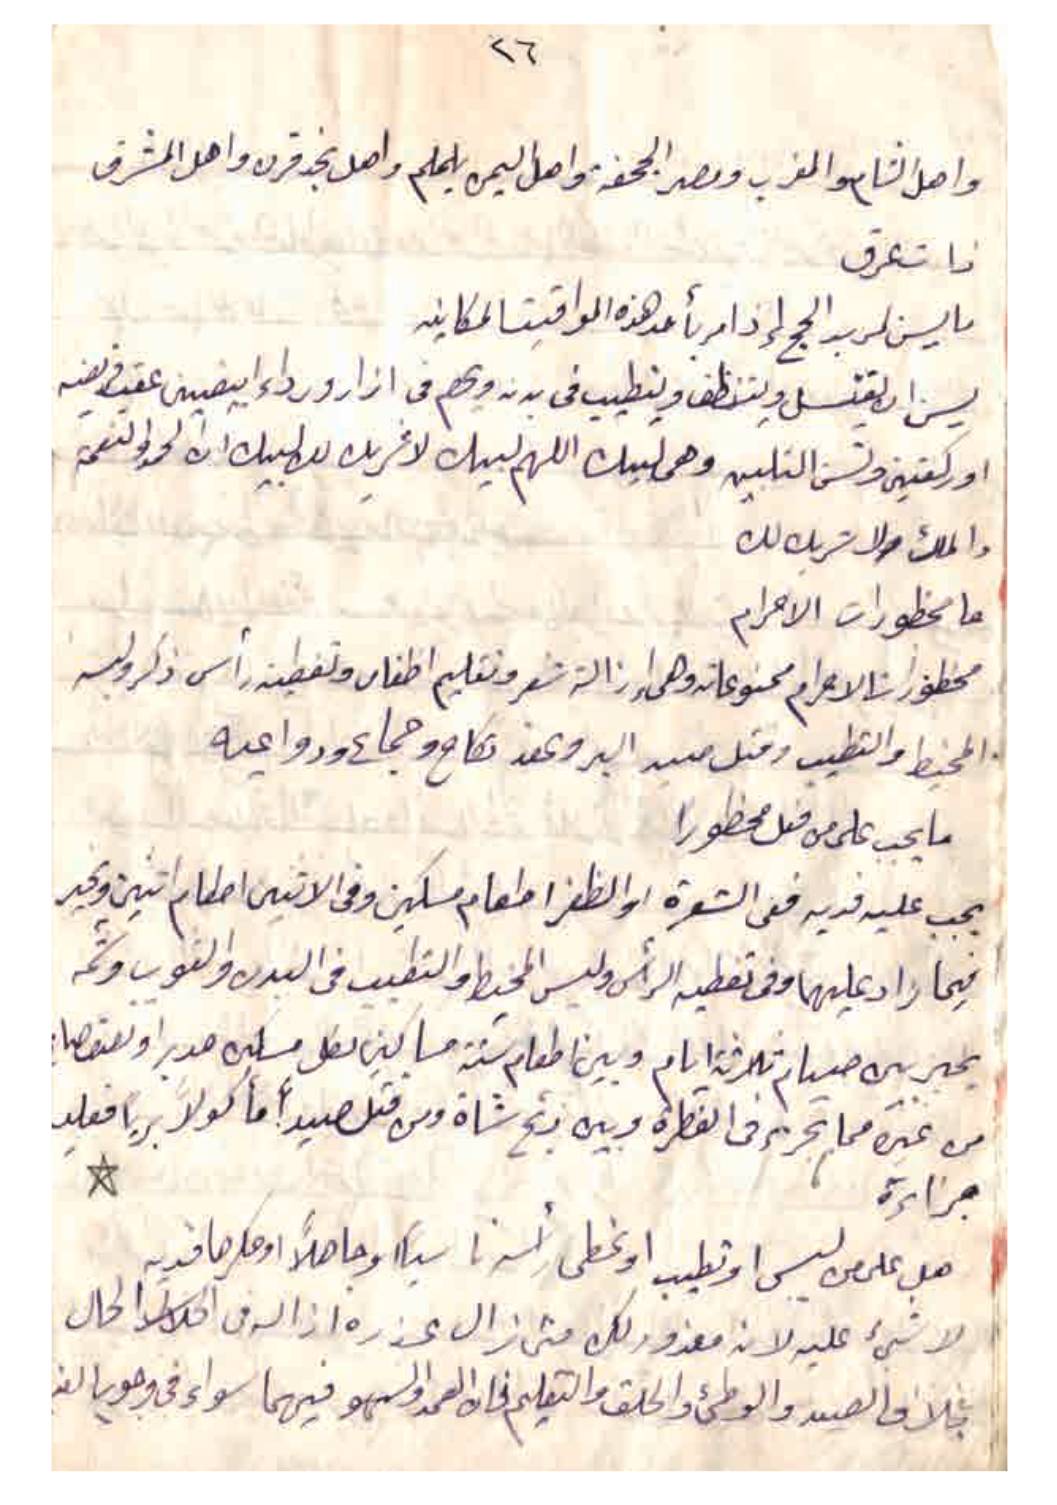 ٢٦
واهل الشام والمغرب ومصر الجحفة واهل اليمن يلملم واهل نجد قرن واهل المشرق
ذات عرق
ما يسن لمريد الحج إذا مر بأحد هذه المواقيت المكانيه
يسن ان يغتسل ويتنظف ويتطيب في بدنه ويحرم في ازار ورداء ابيضين عقب فريضه
او ركعتين وتسن التلبيه وهي لبيك اللهم لبيك لا شريك لك لبيك ان الحمد والنعمة
والملك لا شريك لك
ما محظورات الاحرام
محظورات الاحرام ممنوعاته وهي إزالة شعر وتقليم اظفار وتغطية رأس ذكر ولبسه
المخيط والتطيب وقتل صيد البر وعقد نكاح وجماع ودواعيه
ما يجب على من فعل محظورا
يجب عليه فديه ففي الشعرة او الظفر اطعام مسكين وفي الاثنين اطعام اثنين ويخير
فيما زاد عليهما وفي تغطيه الرأس ولبس المخيط والتطيب في البدن والثوب وشمه
يخير بين صيام ثلاثة ايام وبين اطعام ستة مساكين لكل مسكين مد بر او نصف صاع
من غيره مما يجزئ في الفطرة وبين ذبح شاة ومن قتل صيداً مأكولاً برياً فعليه
جزاءه
هل على من لبس او تطيب او غطى رأسه ناسياً او جاهلاً او مكرها فديه
لا شيئ عليه لانه معذور لكن متى زال عذره ازاله في الحال
بخلاف الصيد والوطئ والحلق والتقليم فان العمد والسهو فيهما سواء في وجوب